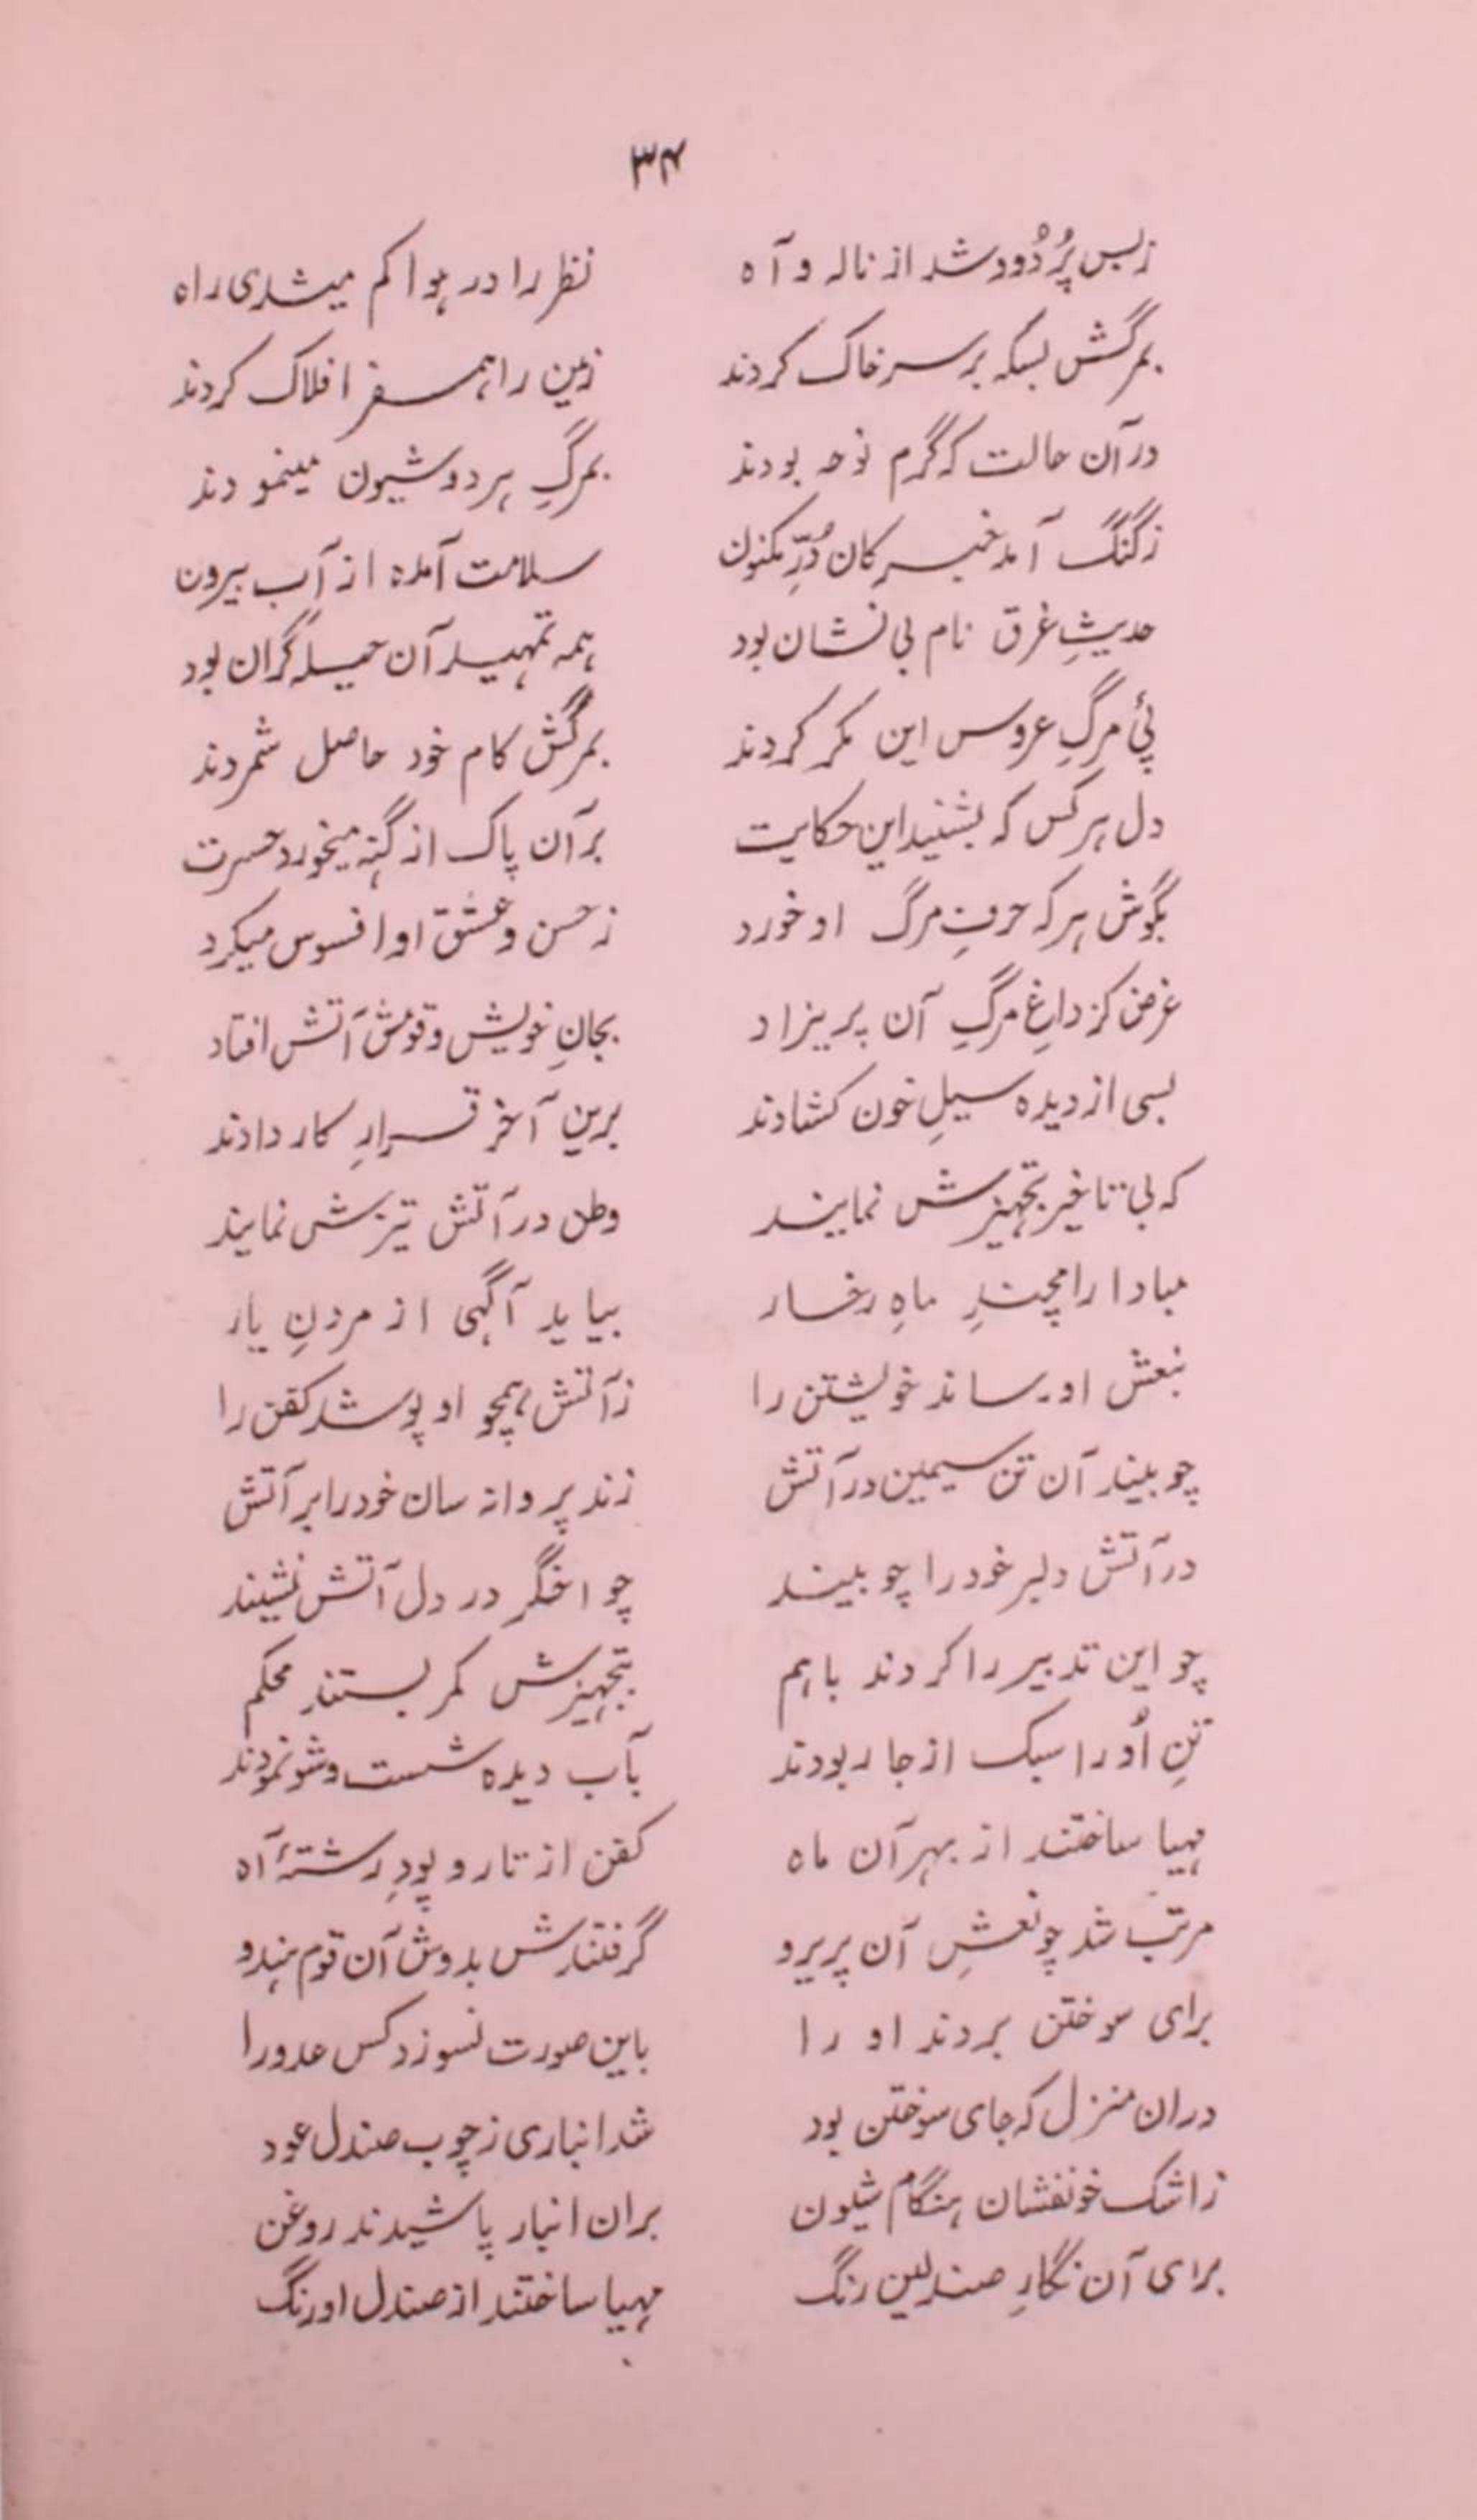 ۳۴
زبس پُر دُود شد از ناله و آه نظر را در هوا کم میشدی راه
بمرگش بسکه بر سر خاک کردند زمین را همسفر افلاک کردند
در آن حالت که گرم نوحه بودند بمرگِ هر دو شیون مینمودند
ز گنگ آمد خبر کان دُرِّ مکنون سلامت آمده از آب بیرون
حدیثِ غرق نام بی نشان بود همه تمهید آن حیله گران بود
پئ مرگِ عروس این مکر کردند بمرگش کام خود حاصل شمردند
دل هر کس که بشنید این حکایت بر آن پاک از گنه میخورد حسرت
بگوش هر که حرفِ مرگ او خورد ز حسن و عشق او افسوس میکرد
غرض کز داغِ مرگِ آن پریزاد بجانِ خویش و قومش آتش افتاد
بسی از دیده سیلِ خون کشادند برین آخر قرارِ کار دادند
که بی تاخیر تجهیزش نمایند وطن در آتش تیزش نمایند
مبادا رامچندِ ماهِ رخسار بیابد آگهی از مردنِ یار
بنعش او رساند خویشتن را ز آتش همچو او پوشد کفن را
چو بیند آن تن سیمین در آتش زند پروانه سان خود را بر آتش
در آتش دلبر خود را چو بیند چو اخگر در دل آتش نشیند
چو این تدبیر را کردند باهم بتجهیزش کمر بستند محکم
تنِ اُو را سبک از جا ربودند بآب دیده شست و شو نمودند
مهیا ساختند از بهر آن ماه کفن از تار و پودِ رشتۂ آه
مرتب شد چو نعشِ آن پریرو گرفتندش بدوش آن قوم هندو
برای سوختن بردند او را باین صورت نسوزد کس عدو را
دران منزل که جای سوختن بود شد انباری ز چوب صندل عود
ز اشک خونفشان هنگام شیون بران انبار پاشیدند روغن
برای آن نگارِ صندلین رنگ مهیا ساختند از صندل اورنگ